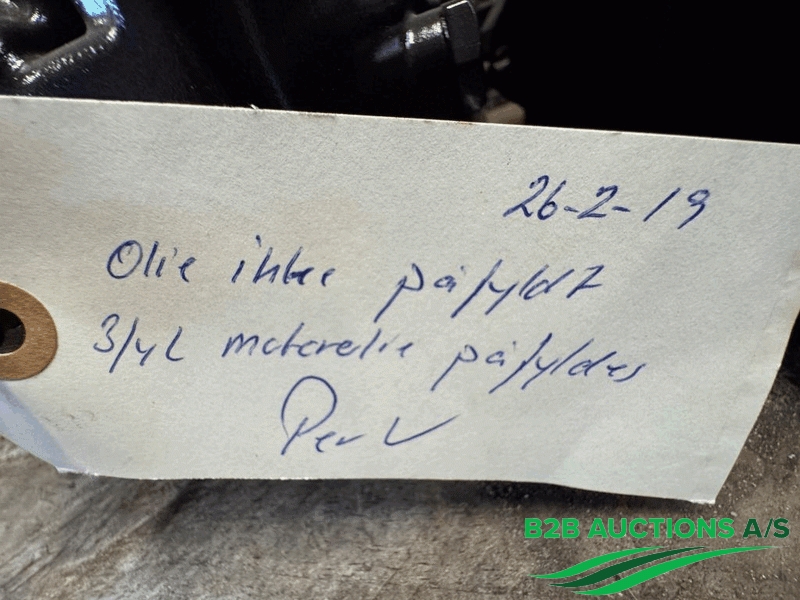 26-2-19
Olie ikke påfyldt
3/4 L motorolie påfyldes
Per V
B2B AUCTIONS A/S